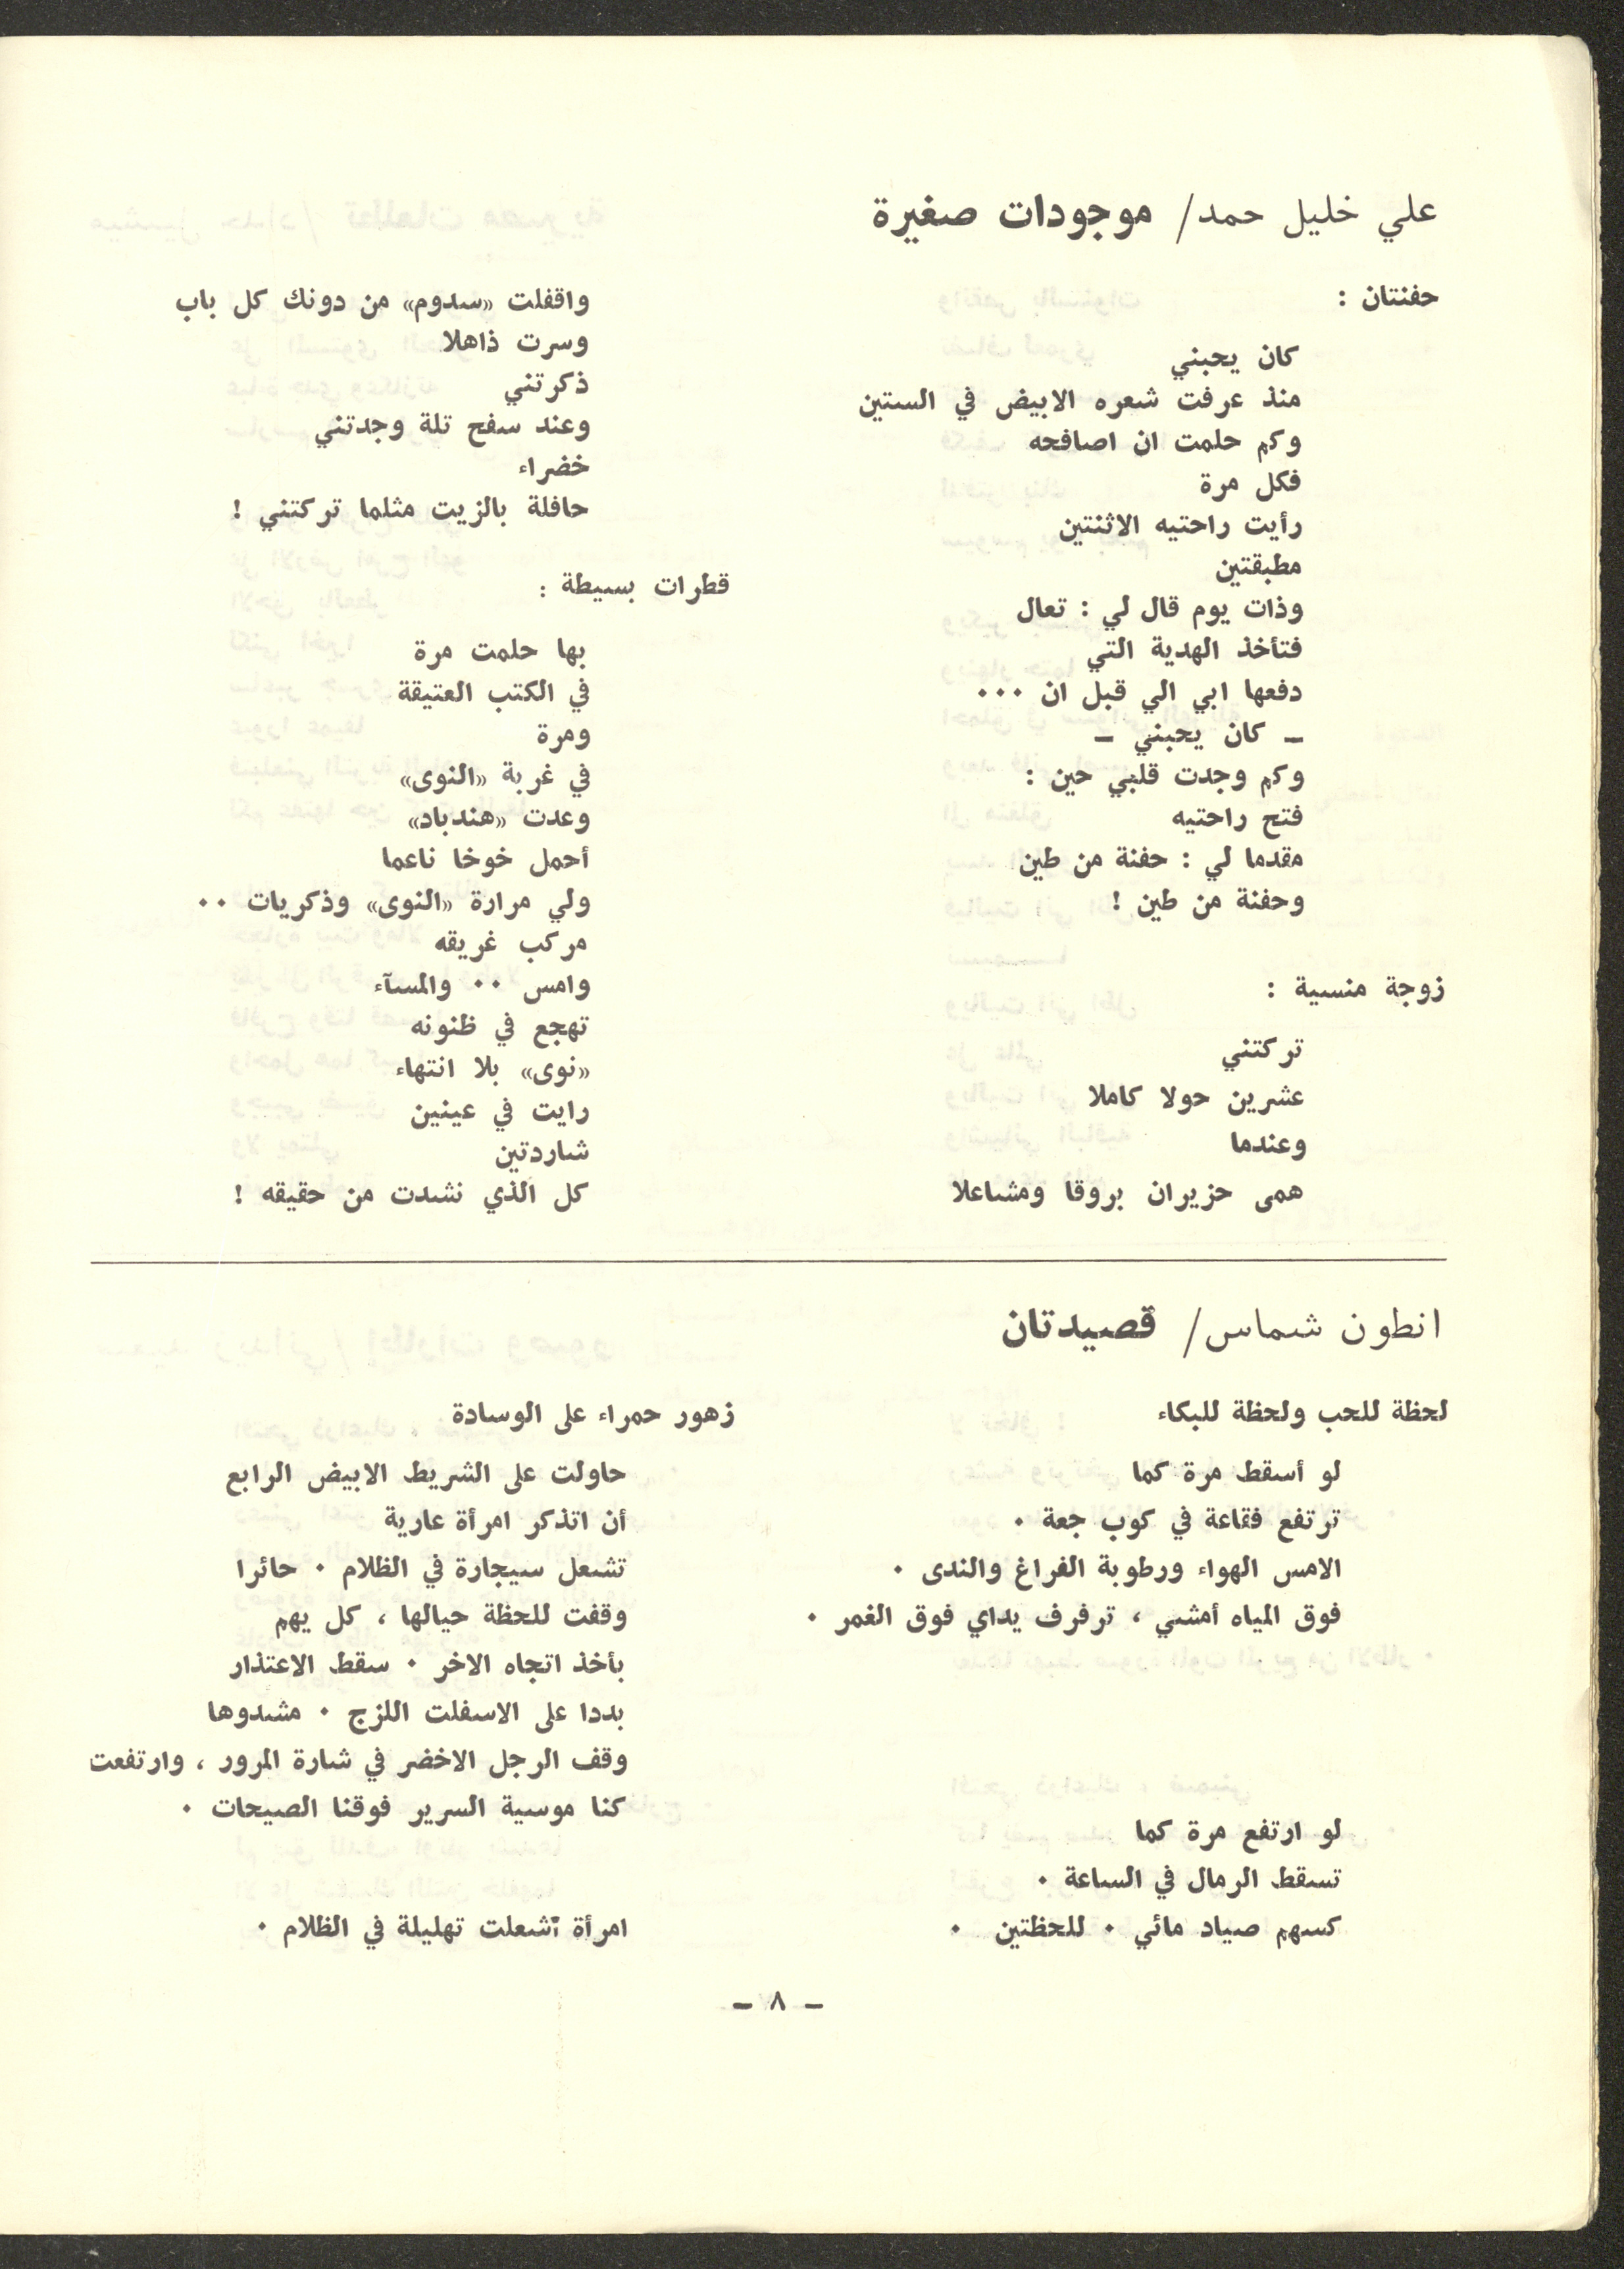 علي خليل حمد/ موجودات صغيرة
حفنتان :
كان يحبني
منذ عرفت شعره الابيض في الستين
وكم حلمت ان اصافحه
فكل مرة
رأيت راحتيه الاثنتين
مطبقتين
وذات يوم قال لي : تعال
فتأخذ الهدية التي
دفعها ابي الي قبل ان ٠٠٠
ـ كان يحبني ـ
وكم وجدت قلبي حين :
فتح راحتيه
مقدما لي : حفنة من طين
وحفنة من طين !
زوجة منسية :
تركتني
عشرين حولا كاملا
وعندما
همى حزيران بروقا ومشاعلا
واقفلت «سدوم» من دونك كل باب
وسرت ذاهلا
ذكرتني
وعند سفح تلة وجدتني
خضراء
حافلة بالزيت مثلما تركتني !
قطرات بسيطة :
بها حلمت مرة
في الكتب العتيقة
ومرة
في غربة «النوى»
وعدت «هندباد»
أحمل خوخا ناعما
ولي مرارة «النوى» وذكريات ٠٠
مركب غريقه
وامس ٠٠ والمسآء
تهجع في ظنونه
«نوى» بلا انتهاء
رايت في عينين
شاردتين
كل الذي نشدت من حقيقه !
انطون شماس/ قصيدتان
لحظة للحب ولحظة للبكاء
لو أسقط مرة كما
ترتفع فقاعة في كوب جعة ٠
الامس الهواء ورطوبة الفراغ والندى ٠
فوق المياه أمشي ، ترفرف يداي فوق الغمر ٠
لو ارتفع مرة كما
تسقط الرمال في الساعة ٠
كسهم صياد مائي ٠ للحظتين ٠
زهور حمراء على الوسادة
حاولت على الشريط الابيض الرابع
أن اتذكر امرأة عارية
تشعل سيجارة في الظلام ٠ حائرا
وقفت للحظة حيالها ، كل يهم
بأخذ اتجاه الاخر ٠ سقط الاعتذار
بددا على الاسفلت اللزج ٠ مشدوها
وقف الرجل الاخضر في شارة المرور ، وارتفعت
كنا موسية السرير فوقنا الصيحات ٠
امرأة أشعلت تهليلة في الظلام ٠
ـ ٨ ـ